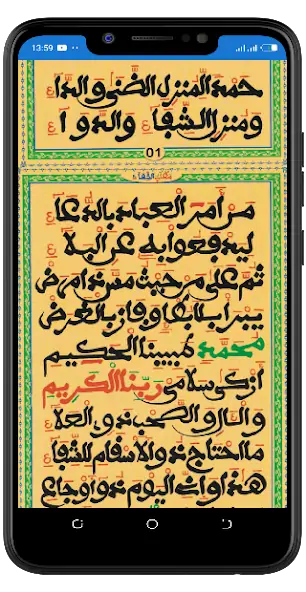 13:59
حمدا لمنزل الضنى والداء
ومنزل الشفاء والدواء
01
من أمر العباد بالدعا
ليدفعوا به عن البلاء
ثم على من حيث مس ذا مرض
يبرأ وفاز بالغرض
محمد نبينا الحكيم
أزكى سلامي ربنا الكريم
والآل والصحب ذوي العلاء
ما احتاج ذو الأسقام للشفاء
هذا وإني اليوم ذو أوجاع